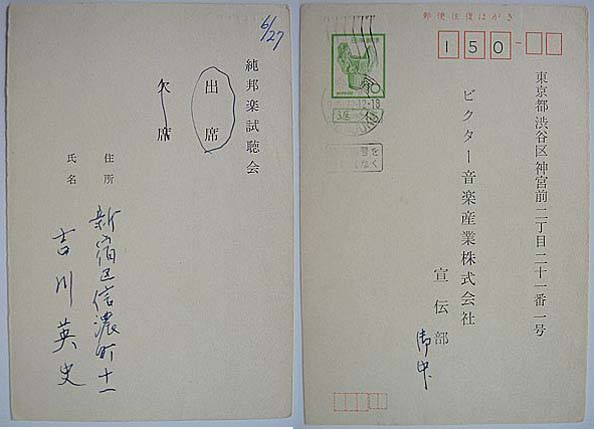 6/27
純邦楽試聴会
出席
欠席
住所
新宿区信濃町十一
氏名
吉川英史
郵便往復はがき
150
東京都渋谷区神宮前二丁目二十一番一号
ビクター音楽産業株式会社
宣伝部
御中